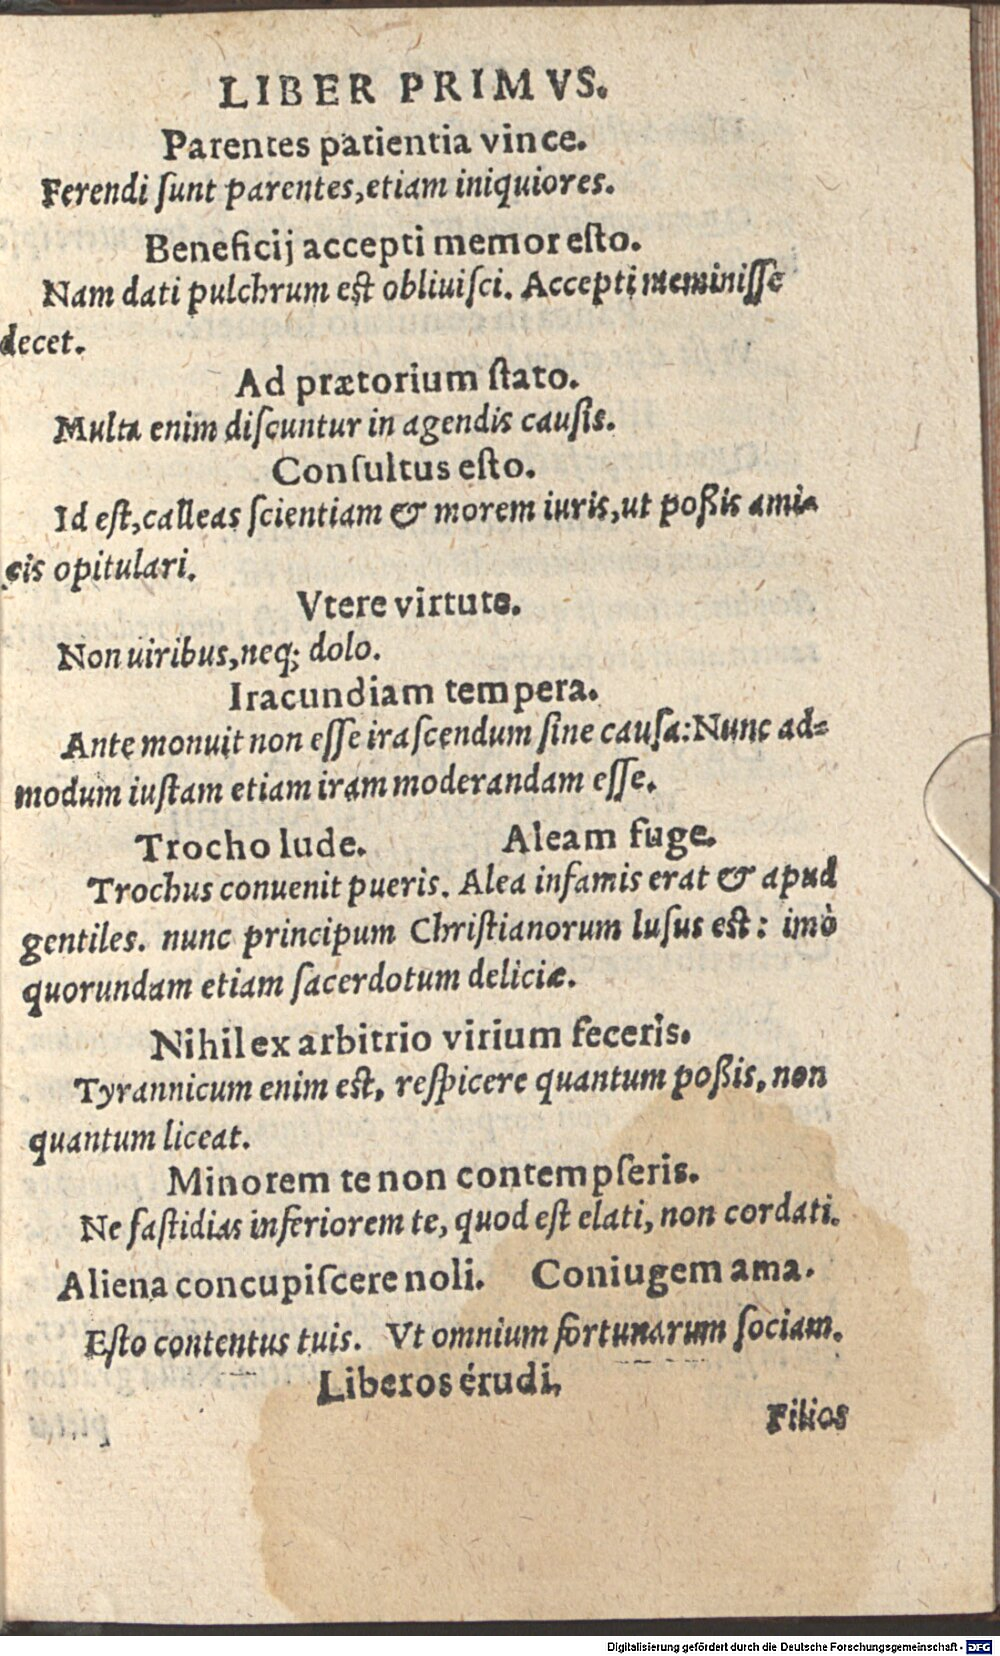 LIBER PRIMVS.
Parentes patientia vince.
Ferendi ſunt parentes, etiam iniquiores.
Beneficij accepti memor eſto.
Nam dati pulchrum eſt obliuiſci. Accepti meminiſſe
decet.
Ad prætorium ſtato.
Multa enim diſcuntur in agendis cauſis.
Conſultus eſto.
Id eſt, calleas ſcientiam & morem iuris, ut poßis ami-
cis opitulari.
Vtere virtute.
Non uiribus, neq; dolo.
Iracundiam tempera.
Ante monuit non eſſe iraſcendum ſine cauſa: Nunc ad-
modum iuſtam etiam iram moderandam eſſe.
Trocho lude. Aleam fuge.
Trochus conuenit pueris. Alea infamis erat & apud
gentiles. nunc principum Chriſtianorum luſus eſt: imò
quorundam etiam ſacerdotum deliciæ.
Nihil ex arbitrio virium feceris.
Tyrannicum enim eſt, reſpicere quantum poßis, non
quantum liceat.
Minorem te non contempſeris.
Ne faſtidias inferiorem te, quod eſt elati, non cordati.
Aliena concupiſcere noli. Coniugem ama.
Eſto contentus tuis. Vt omnium fortunarum ſociam.
Liberos érudi,
Filios
Digitalisierung gefördert durch die Deutsche Forschungsgemeinschaft - DFG